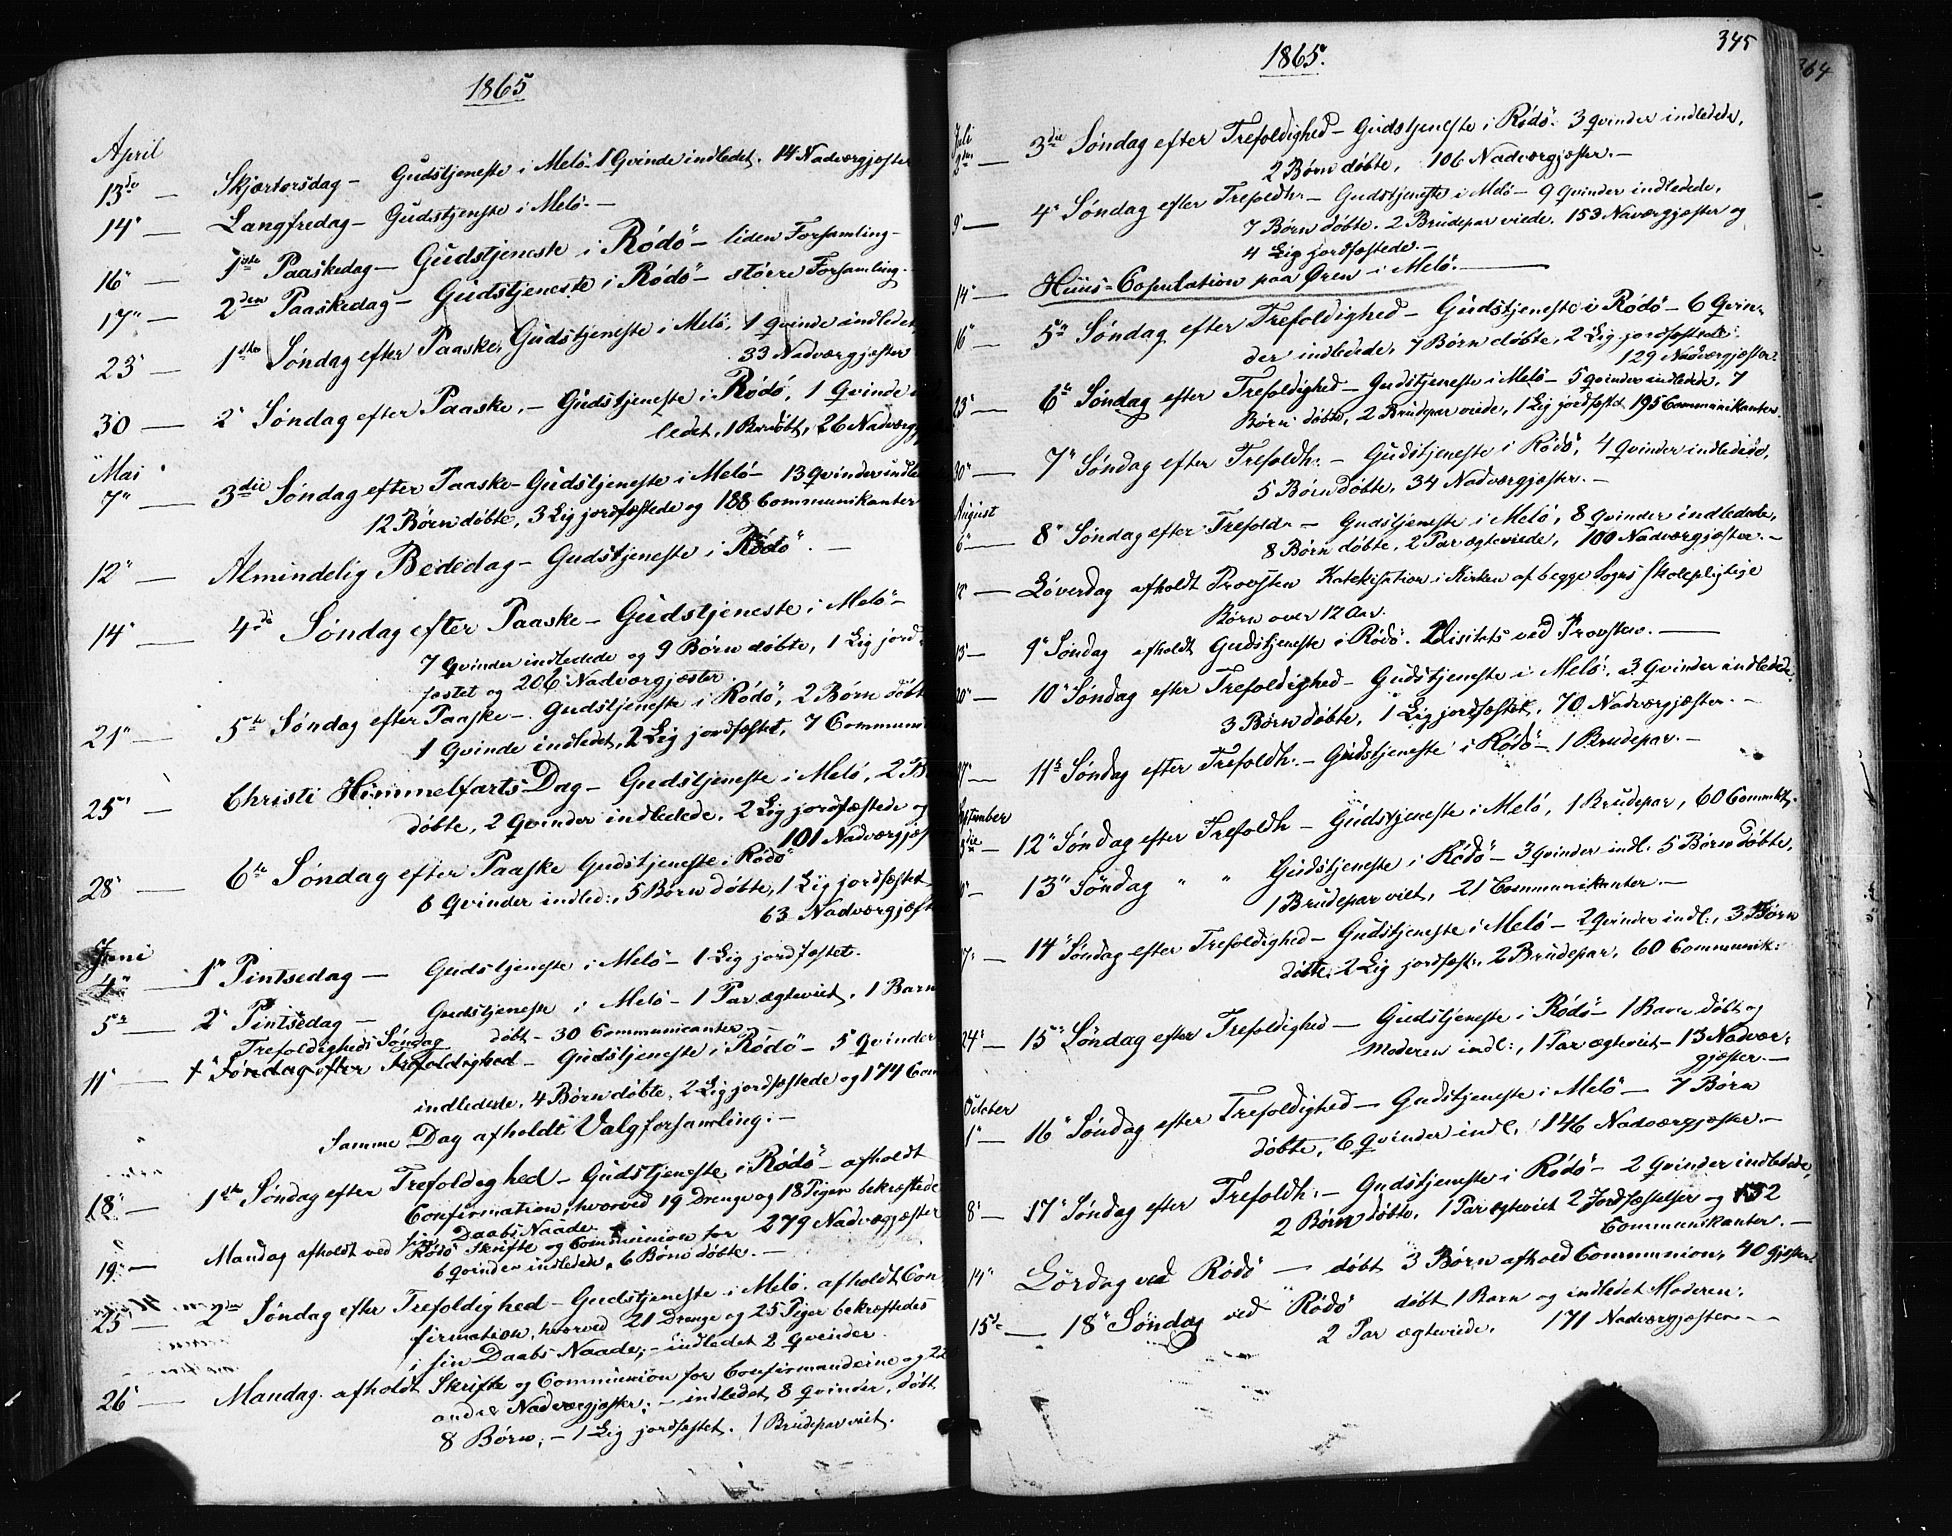 1865
April
13de — Skjærtorsdag — Gudstjeneste i Melö. 1 Qvinde indledet. 14 Nadvergjæster
14" — Langfredag — Gudstjeneste i Melö. —
16" — 1ste Paaskedag — Gudstjeneste i Rödö — liden Forsamling —
17" — 2den Paaskedag — Gudstjeneste i Rödö — større Forsamling. —
23" — 1ste Søndag efter Paaske, Gudstjeneste i Melö, 1 Qvinde indledet
33 Nadværgjæster
30 — 2" Søndag efter Paaske, — Gudstjeneste i Rödö, 1 Qvinde
ledet, 1 Barn döbt, 26 Nadværg
Mai
7" — 3die Søndag efter Paaske — Gudstjeneste i Melö — 13 Qvinder indle
12 Børn døbte, 3 Lig jordfæstede og 188 Communikanter
12" — Almindelig Bededag — Gudstjeneste i Rödö. —
14" — 4de Søndag efter Paaske — Gudstjeneste i Melö —
7 Qvinder indledede og 9 Børn døbte, 1 Lig jord
fæstet og 206 Nadværgjæster
21" — 5te Søndag efter Paaske — Gudstjeneste i Rödö, 2 Børn døbt
1 Qvinde indledet, 2 Lig jordfæstet, 7 Communi
25" — Christi Himmelfarts Dag — Gudstjeneste i Melö, 2 B
døbte, 2 Qvinder indledede, 2 Lig jordfæstede og
101 Nadværgjæs
28" — 6te Søndag efter Paaske Gudstjeneste i Rödö
6 Qvinder indled:, 5 Børn døbte, 1 Lig jordfæstet
63 Nadværgjæst
Juni
4" — 1" Pintsedag — Gudstjeneste i Melö — 1 Lig jordfæstet.
5" — 2" Pintsedag — Gudstjeneste i Melö — 1 Par ægteviet, 1 Barn
døbt — 30 Communicanter
Trefoldigheds Søndag
11" — Søndag efter Trefoldighed — Gudstjeneste i Rödö — 5 Qvinder
indledede, 4 Børn døbte, 2 Lig jordfæstede og 174 Com
Samme Dag afholdt Valgforsamling. —
18" — 1ste Søndag efter Trefoldighed — Gudstjeneste i Rödö — afholdt
Confirmation, hvorved 19 Drenge og 18 Piger bekræftede
sin Daabs Naade
19" — Mandag afholdt ved Rödö Skrifte og Communion for 279 Nadvergjæster
6 Qvinder indledede, 6 Børn døbte. —
25" — 2den Søndag efter Trefoldighed — Gudstjeneste i Melö, afholdt Con
firmation, hvorved 21 Drenge og 25 Piger bekræftedes
i sin Daabs Naade; — indledet 2 Qvinder.
26" — Mandag afholdt Skrifte og Communion for Confirmanderne og 22
andre Nadværgjæster; — indledet 8 Qvinder, døbt
8 Børn; — 1 Lig jordfæstet. 1 Brudepar viet.
1865.
345
364
Juli
2den — 3die Søndag efter Trefoldighed — Gudstjeneste i Rödö. 3 Qvinder indledede,
2 Børn døbte, 106 Nadværgjæster. —
9 — 4" Søndag efter Trefoldh. — Gudstjeneste i Melö — 9 Qvinder indledede,
7 Børn døbte. 2 Brudepar viede. 153 Naværgjæster og
4 Lig jordfæstede. —
14" — Huus-Copulation paa Øren i Melö. —
16" — 5te Søndag efter Trefoldighed — Gudstjeneste i Rödö — 6 Qvin-
der indledede, 7 Børn døbte, 2 Lig jordfæstede.
129 Nadværgjæster.
23" — 6te Søndag efter Trefoldighed — Gudstjeneste i Melö — 5 Qvinder indledede, 7
Børn døbte, 2 Brudepar viede, 1 Lig jordfæstet 195 Communikanter.
30" — 7" Søndag efter Trefoldh: — Gudstjeneste i Rödö, 4 Qvinder indledede,
5 Børn døbte, 34 Nadværgjæster. —
August
6" — 8" Søndag efter Trefold: — Gudstjeneste i Melö, 8 Qvinder indledede,
8 Børn døbte, 2 Par ægteviede, 100 Nadværgjæster. —
12" — Løverdag afholdt Provsten Katekisation i Kirken af begge Sogns skolepligtige
Børn over 12 Aar.
13" — 9" Søndag afholdt Gudstjeneste i Rödö. Visitats ved Provsten. —
20" — 10" Søndag efter Trefoldighed — Gudstjeneste i Melö. 3 Qvinder indledede,
3 Børn døbte, 1 Lig jordfæstet, 70 Nadværgjæster. —
27" — 11te Søndag efter Trefoldh. — Gudstjeneste i Rödö — 1 Brudepar. —
September
3die — 12" Søndag efter Trefoldh — Gudstjeneste i Melö, 1 Brudepar, 60 Commkt.
13" Søndag " " Gudstjeneste i Rödö — 3 Qvinder indl. 5 Børn døbte,
1 Brudepar viet, 21 Communikanter. —
7" — 14" Søndag efter Trefoldighed — Gudstjeneste i Melö — 2 Qvinder indl:, 3 Børn
døbte, 2 Lig jordfæst:, 2 Brudepar, 60 Communik:
24" — 15" Søndag efter Trefoldighed — Gudstjeneste i Rödö — 1 Barn døbt og
Moderen indl:, 1 Par ægteviet — 13 Nadvær-
gjæster. —
October
1" — 16" Søndag efter Trefoldighed — Gudstjeneste i Melö — 7 Børn
døbte, 6 Qvinder indl, 146 Nadværgjæster. —
8" — 17" Søndag efter Trefoldh: — Gudstjeneste i Rödö — 2 Qvinder indledede,
2 Børn døbte, 1 Par ægteviet 2 Jordfæstelser og 132
Communikanter. —
14" Lördag ved Rödö — døbt 3 Børn afhold Communion, 40 Gjæster.
15de — 18" Søndag ved Rödö døbt 1 Barn og indledet Moderen:
2 Par ægteviede, 171 Nadværgjæster. —